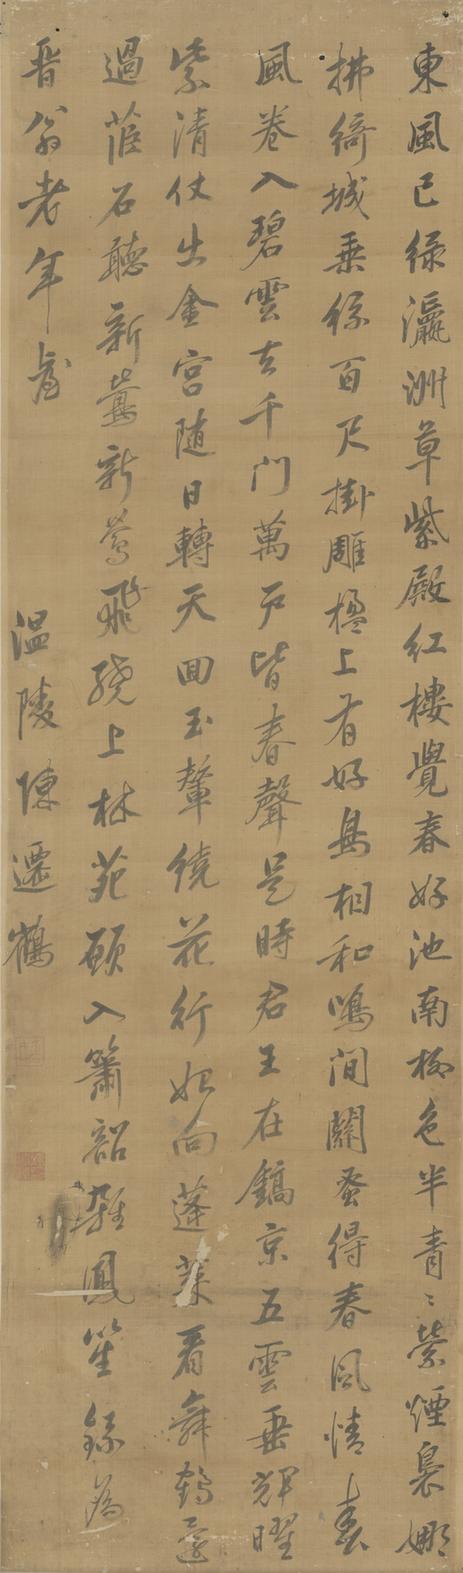 東風已綠瀛洲草紫殿紅樓覺春好池南柳色半青〻縈煙裊娜
拂綺城垂絲百尺掛雕楹上有好鳥相和鳴間關蚤得春風情春
風卷入碧雲去千門萬戶皆春聲是時君王在鎬京五雲垂輝曜
紫清仗出金宮随日轉天回玉輦繞花行始向蓬萊看舞鶴還
過茝石聽新鶯新鶯飛繞上林苑願入簫韶雜鳳笙錄為
晉翁老年臺
温陵陳遷鶴